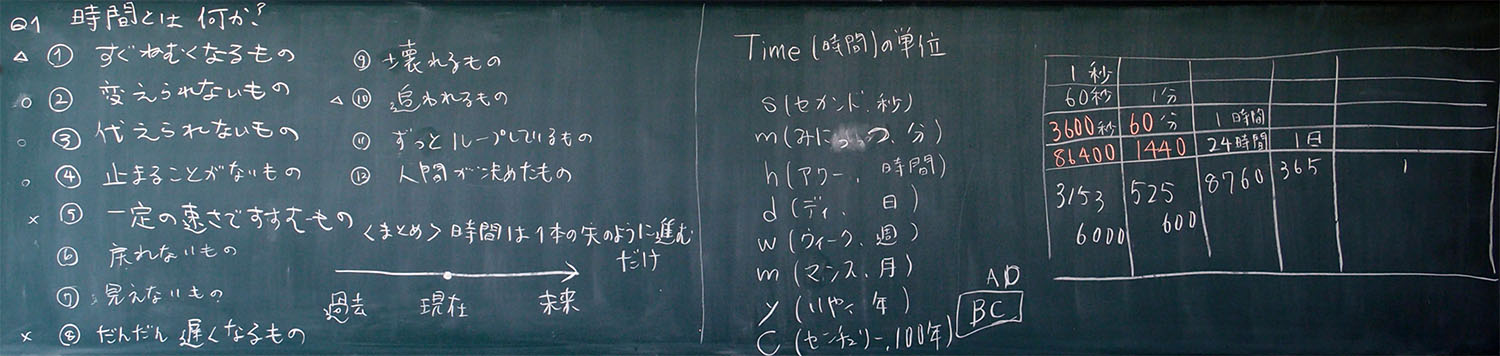 Q1 時間とは何か?
△ ① すぐねむくなるもの
○ ② 変えられないもの
○ ③ 代えられないもの
○ ④ 止まることがないもの
× ⑤ 一定の速さですすむもの
⑥ 戻れないもの
⑦ 見えないもの
× ⑧ だんだん遅くなるもの
⑨ 壊れるもの
△ ⑩ 追われるもの
⑪ ずっとループしているもの
⑫ 人間が決めたもの
<まとめ> 時間は1本の矢のように進む
だけ
過去 現在 未来
Time (時間)の単位
s (セカンド、秒)
m (みにっつ、分)
h (アワー、時間)
d (ディ、日)
w (ウィーク、週)
m (マンス、月)
y (いやー、年)
C (センチュリー、100年)
AD
BC
1秒
60秒 1分
3600秒 60分 1時間
86400 1440 24時間 1日
3153 525 8760 365 1
6000 600